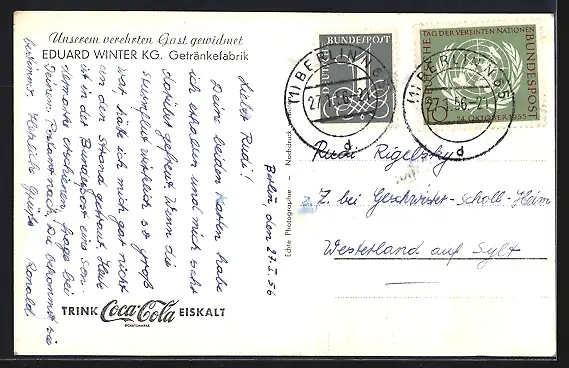 Unserem verehrten Gast gewidmet
EDUARD WINTER KG. Getränkefabrik
Berlin, den 27.I.56
Lieber Rudi!
Deine beiden Karten habe
ich erhalten und mich sehr
darüber gefreut. Wenn die
wirklich so groß
war, hätte ich mich gar nicht
an den Strand getraut. Heute
ist in der Bundespost eine Son-
dermarke erschienen, frage bei
Deinem Postamt nach, Du bekommst sie
bestimmt. Herzliche Grüße Ronald
TRINK Coca-Cola EISKALT
SCHUTZMARKE
Echte Photographie - Nachdruck
DEUTSCHE BUNDESPOST
TAG DER VEREINTEN NATIONEN
DEUTSCHE BUNDESPOST
10
24. OKTOBER 1955
(1) BERLIN
27.1.56-21
a
(1) BERLIN
27.1.56-21
a
Rudi Rigelsky
z. Z. bei Geschwister-Scholl-Heim
Westerland auf Sylt